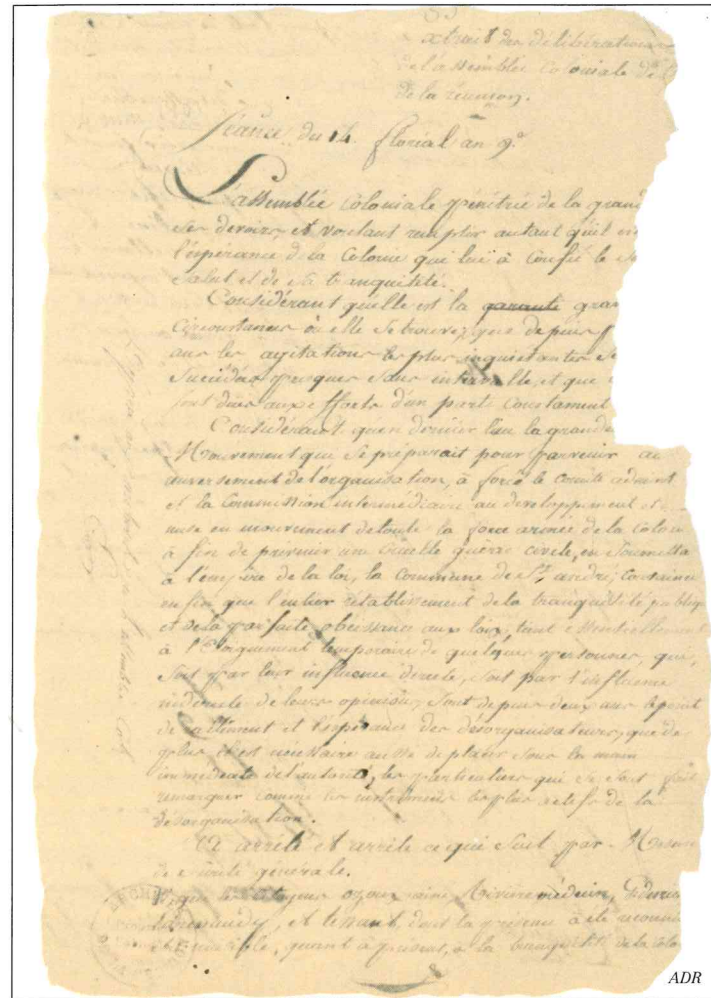 extrait des délibérations
de l'assemblée Coloniale de
de la réunion.
Séance du 14 floréal an 9.e
L'assemblée Coloniale pénétrée de la grand
ses devoirs, et voulant remplir autant qu'il
l'espérance de la Colonie qui lui à Confié le
Salut et de sa tranquilité.
Considérant quelle est la garante gran
Circonstances où elle se trouve, que depuis
ans les agitations les plus inquiétantes se
Succédées presques sans intervalle, et que
sont dues aux efforts d'un parti Constament
Considérant qu'en dernier lieu la grande
Mouvement qui se préparait pour parvenir au
renversement de l'organisation, à forcé le Comité admint
et la Commission intermédiaire au développement et
mise en mouvement de toute la force armée de la Colon
à fin de prévenir une Cruelle guerre civile, en Soumetta
à l'empire de la loi, la Commune de St andré; Convaincue
enfin que l'entier rétablissement de la tranquilité publiq
et de la parfaite obéissance aux loix, tient essentiellement
à l'Eloignement temporaire de quelques personnes, qui,
Soit par leur influence directe, Soit par l'influence
indirecte de leurs opinions, Sont depuis deux ans le point
de ralliment et l'espérance des désorganisateurs, que de
plus il est nécessaire aussi de placer Sous la main
immédiate de l'autorité, les particuliers qui se sont fait
remarquer comme les instrumens les plus actifs de la
désorganisation.
A arrêté et arrête ce qui Suit par Mesure
de Sureté générale.
que les Citoyens ozoux ainé, Rivière médecin,
et tessant, dont la présence à été reconnu
quant à présent, à la tranquilité de la colo
ADR